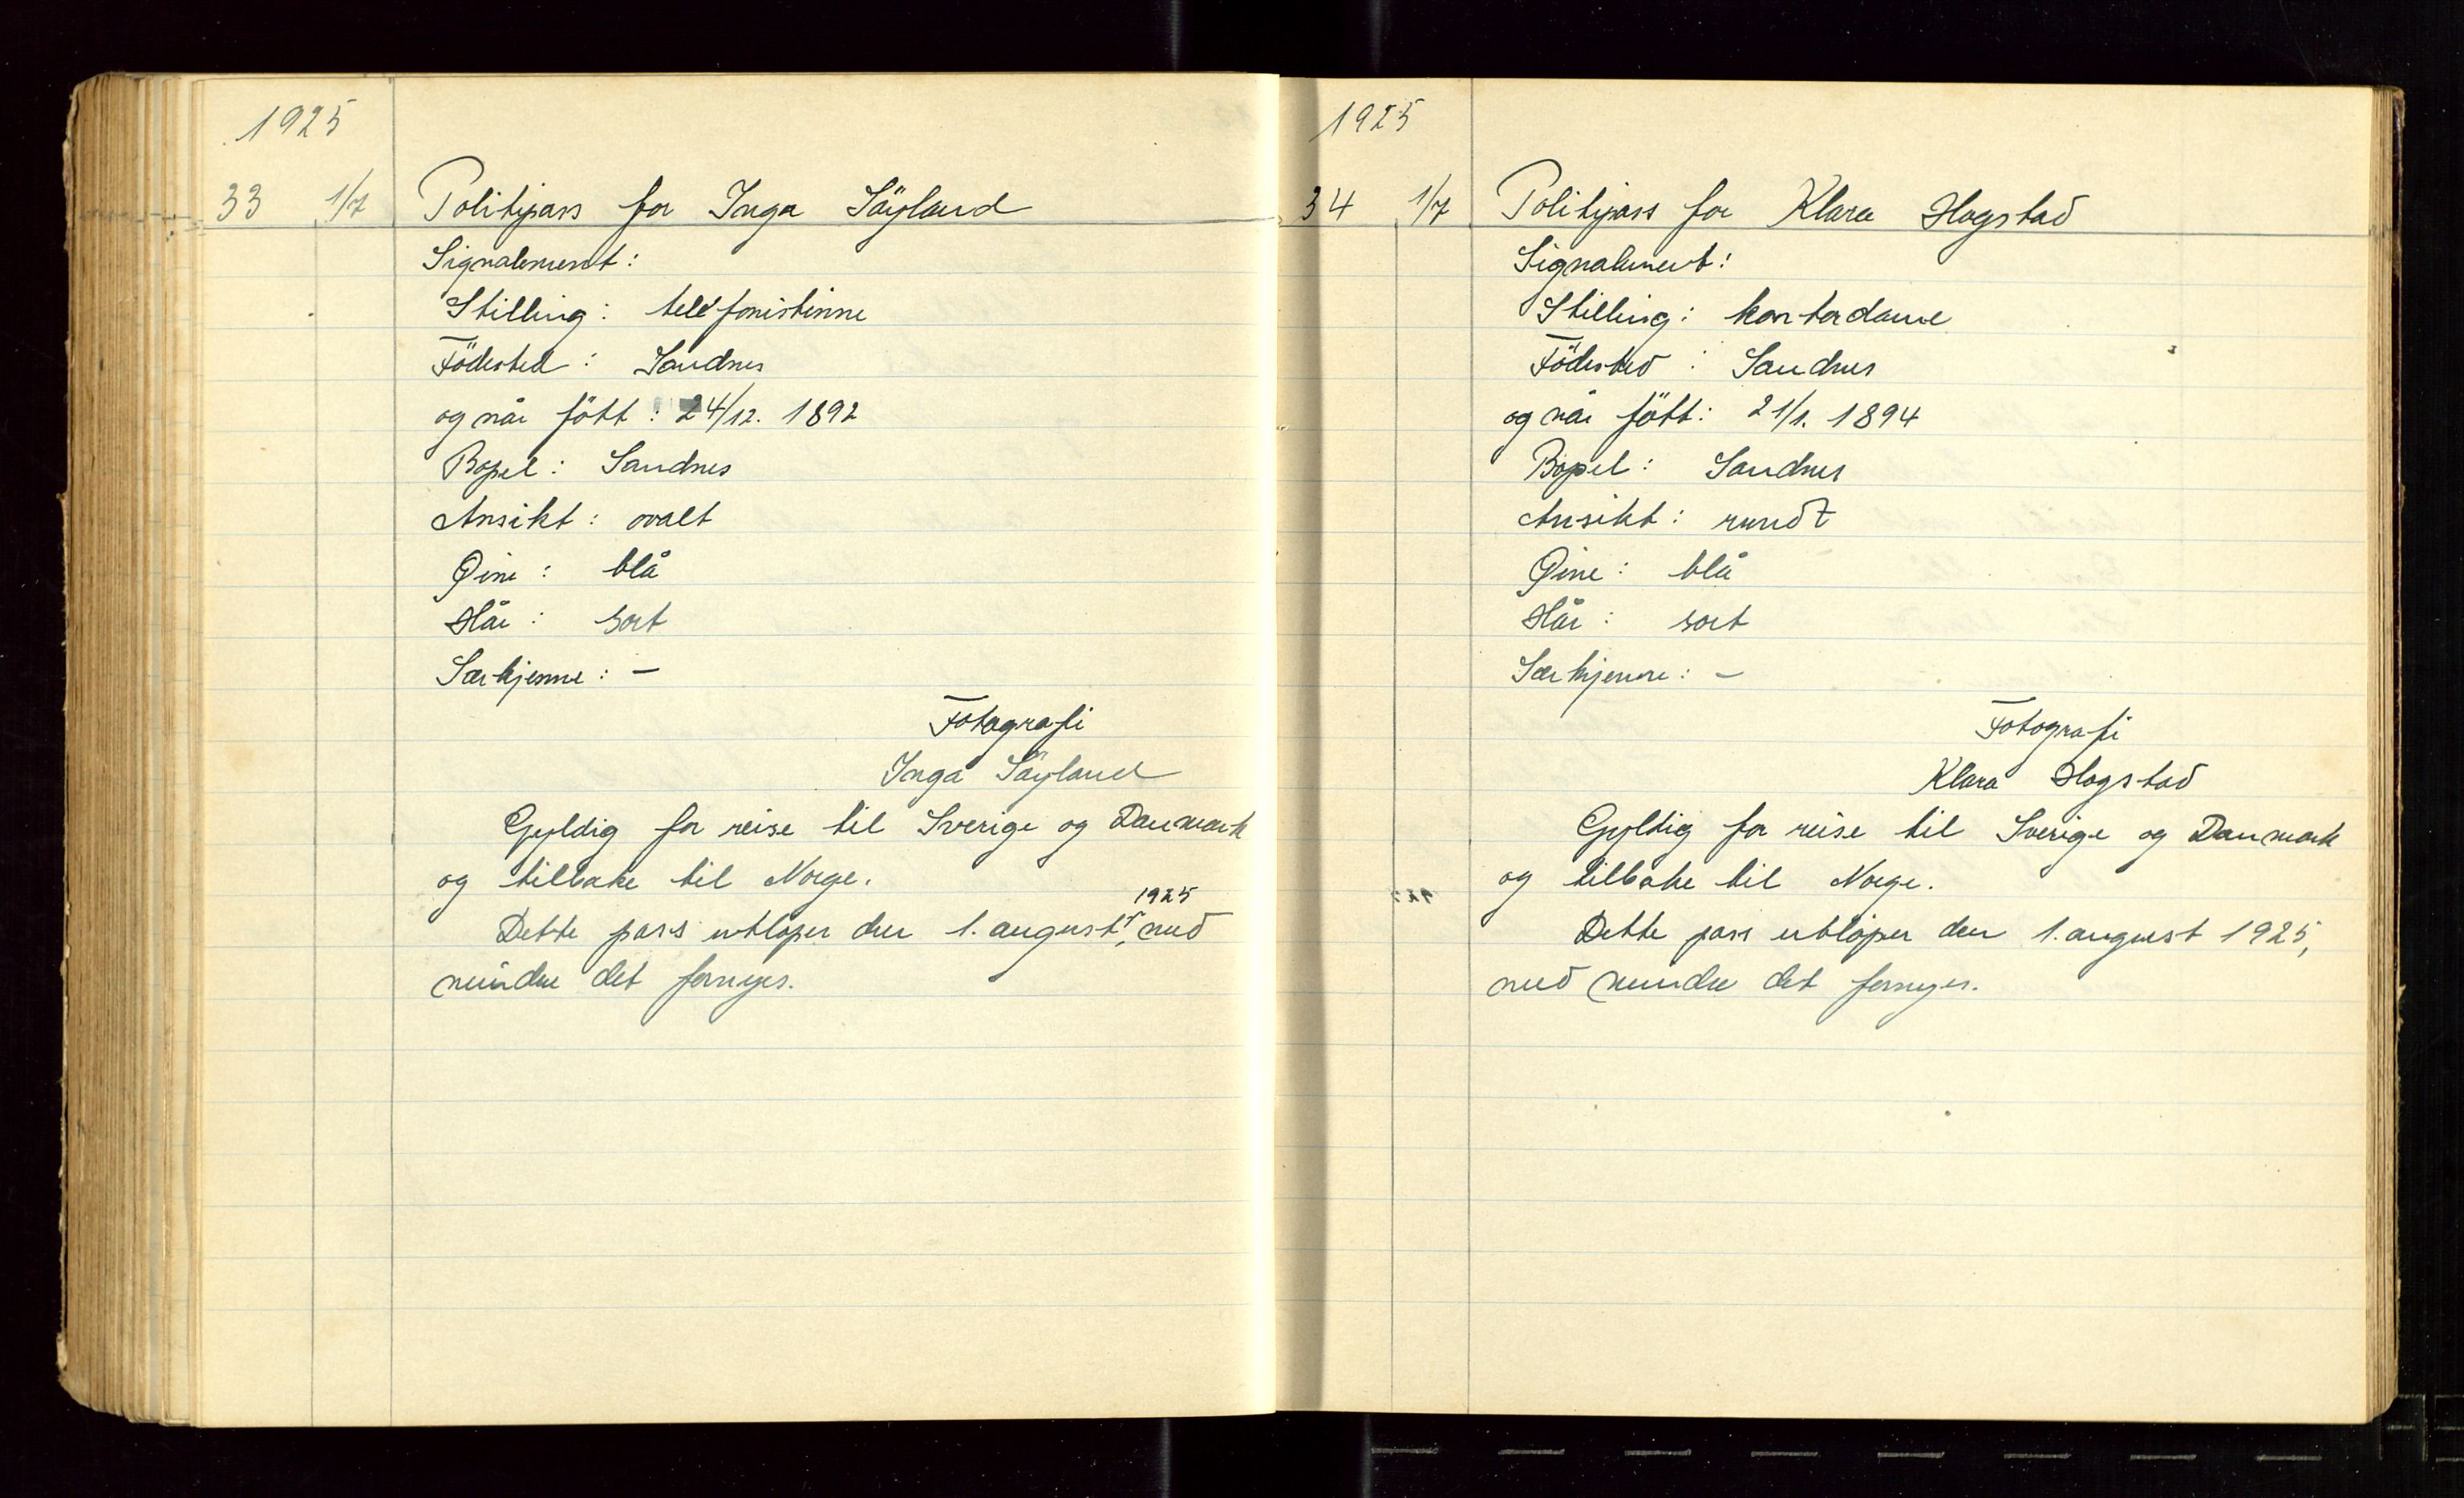 1925
33 1/7 Politipass for Inga Söyland
Signalement:
Stilling: telefonistinne
Födested: Sandnes
og når fött: 24/12. 1892
Bopel: Sandnes
Ansikt: ovalt
Øine: blå
Hår: sort
Særkjenne: —
Fotografi
Inga Söyland
Gyldig for reise til Sverige og Danmark
og tilbake til Norge.
1925
Dette pass utløper den 1. august, med
mindre det fornyes.
1925
34 1/7 Politipass for Klara Hogstad
Signalement:
Stilling: kontordame
Födested: Sandnes
og når fött: 21/1. 1894
Bopel: Sandnes
Ansikt: rundt
Øine: blå
Hår: sort
Særkjenne: —
Fotografi
Klara Hogstad
Gyldig for reise til Sverige og Danmark
og tilbake til Norge.
Dette pass utløper den 1. august 1925,
med mindre det fornyes.